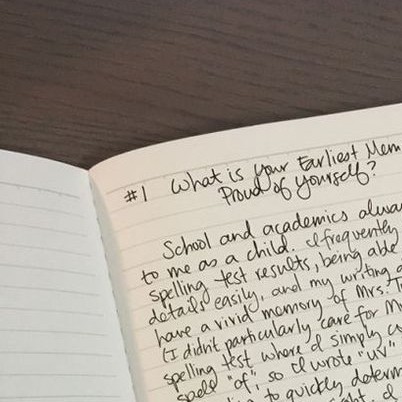 #1 What is Your Earliest Mem
Proud of yourself?
School and academics alwa
to me as a child. I frequently
spelling test results, being able
details easily, and my writing a
have a vivid memory of Mrs. T
(I didn't particularly care for M
spelling test where I simply co
spell "of", so I wrote "uv"
to quickly determ